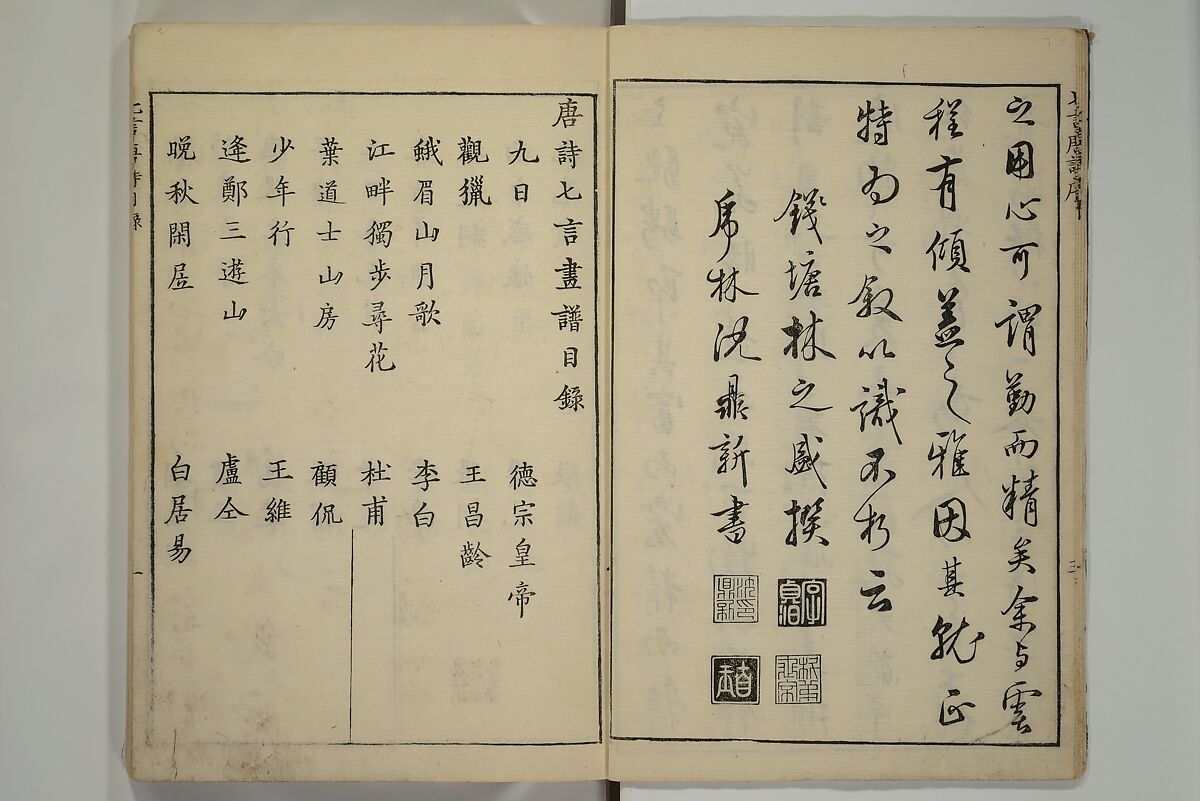 之用心可謂勤而精矣余與雲
程有傾盖之雅因其就正
特為之敘以識不朽云
錢塘林之盛撰
虎林沈鼎新書
唐詩七言畫譜目錄
九日 德宗皇帝
觀獵 王昌齡
蛾眉山月歌 李白
江畔獨步尋花 杜甫
葉道士山房 顧侃
少年行 王維
逢鄭三遊山 盧仝
晚秋閑居 白居易